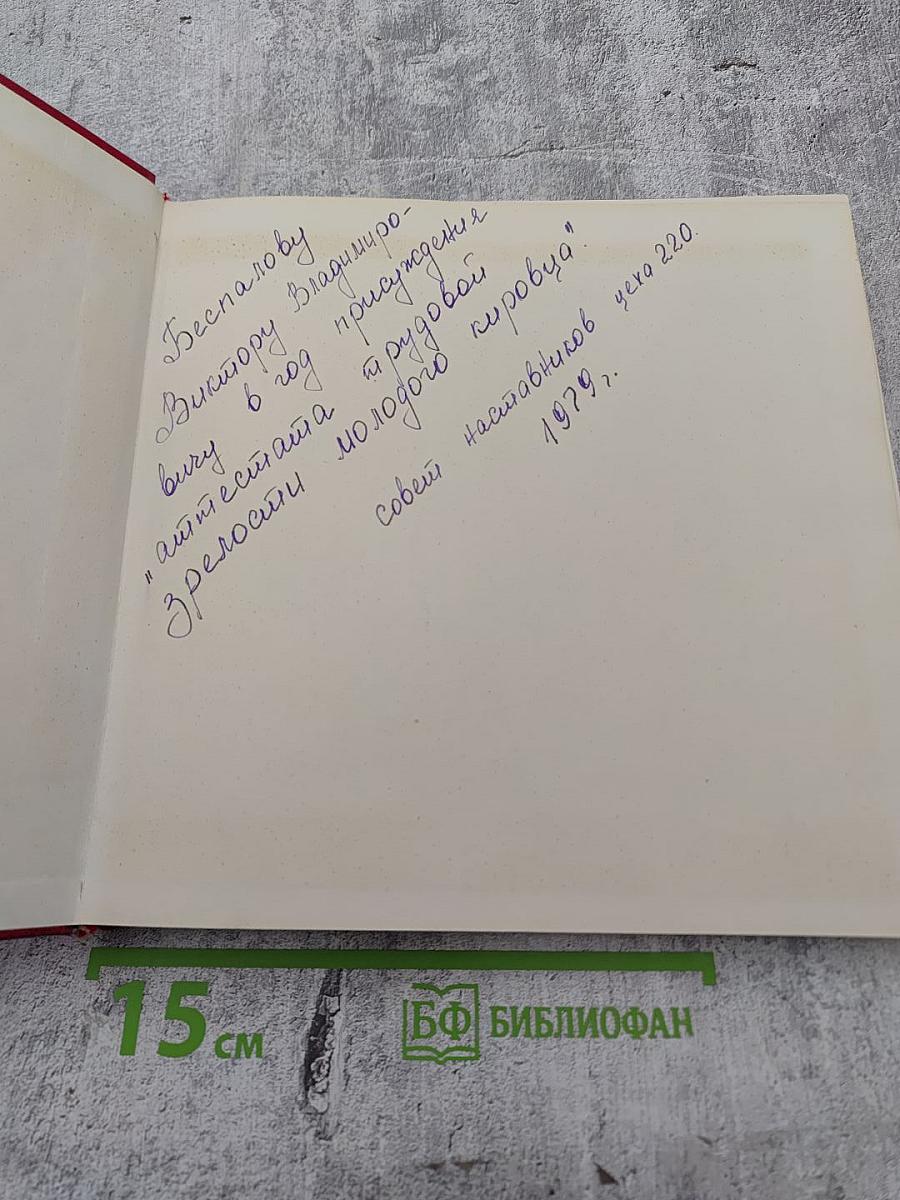 Беспалову
Виктору Владимиро-
вичу в год присуждения
"аттестата трудовой
зрелости молодого кировца".
совет наставников цеха 220.
1979 г.
15 см
БФ БИБЛИОФАН